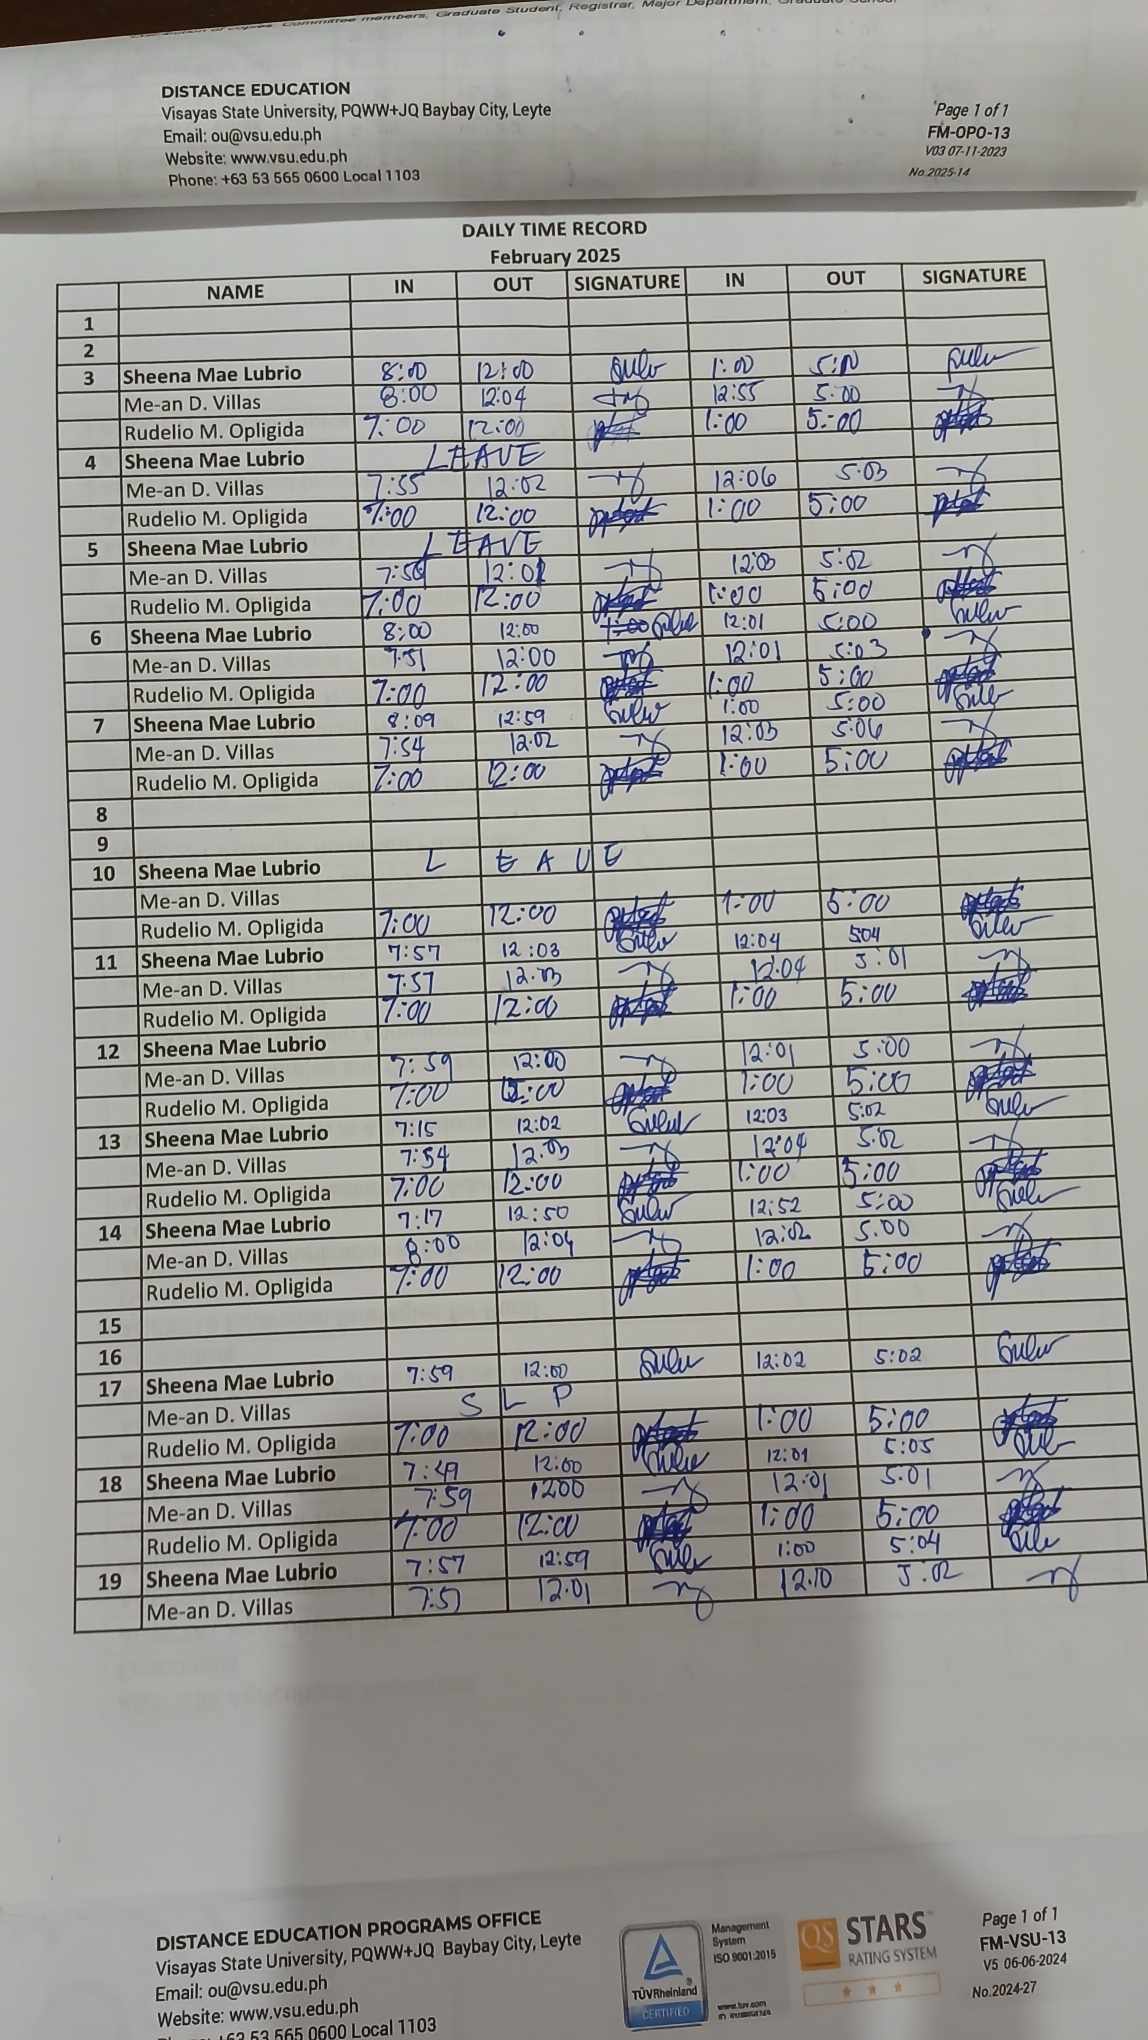 Committee members, Graduate Student, Registrar, Major Department, Graduate School
DISTANCE EDUCATION
Visayas State University, PQWW+JQ Baybay City, Leyte
Email: ou@vsu.edu.ph
Website: www.vsu.edu.ph
Phone: +63 53 565 0600 Local 1103
Page 1 of 1
FM-OPO-13
V03 07-11-2023
No.2025-14
DAILY TIME RECORD
February 2025
NAME IN OUT SIGNATURE IN OUT SIGNATURE
1
2
3 Sheena Mae Lubrio 8:00 12:00 1:00 5:00
Me-an D. Villas 8:00 12:04 12:55 5:00
Rudelio M. Opligida 7:00 12:00 1:00 5:00
4 Sheena Mae Lubrio LEAVE
Me-an D. Villas 7:55 12:02 12:06 5:03
Rudelio M. Opligida 7:00 12:00 1:00 5:00
5 Sheena Mae Lubrio LEAVE
Me-an D. Villas 12:03 5:02
Rudelio M. Opligida 7:00 12:00 1:00 5:00
6 Sheena Mae Lubrio 8:00 12:00 1:00 12:01 5:00
Me-an D. Villas 7:51 12:00 12:01 5:03
Rudelio M. Opligida 7:00 12:00 1:00 5:00
7 Sheena Mae Lubrio 8:09 12:59 1:00 5:00
Me-an D. Villas 7:54 12:02 12:03 5:06
Rudelio M. Opligida 7:00 12:00 1:00 5:00
8
9
10 Sheena Mae Lubrio LEAVE
Me-an D. Villas
Rudelio M. Opligida 7:00 12:00 1:00 5:00
11 Sheena Mae Lubrio 7:57 12:03 12:04 504
Me-an D. Villas 7:57 12:03 12:04 5:01
Rudelio M. Opligida 7:00 12:00 1:00 5:00
12 Sheena Mae Lubrio
Me-an D. Villas 7:59 12:00 12:01 5:00
Rudelio M. Opligida 7:00 12:00 1:00 5:00
13 Sheena Mae Lubrio 7:15 12:02 12:03 5:02
Me-an D. Villas 7:54 12:03 12:04 5:02
Rudelio M. Opligida 7:00 12:00 1:00 5:00
14 Sheena Mae Lubrio 7:17 12:50 12:52 5:00
Me-an D. Villas 8:00 12:04 12:02 5:00
Rudelio M. Opligida 7:00 12:00 1:00 5:00
15
16
17 Sheena Mae Lubrio 7:59 12:00 12:02 5:02
Me-an D. Villas SLP
Rudelio M. Opligida 7:00 12:00 1:00 5:00
18 Sheena Mae Lubrio 7:49 12:00 12:01 5:05
Me-an D. Villas 7:59 1200 12:01 5:01
Rudelio M. Opligida 7:00 12:00 1:00 5:00
19 Sheena Mae Lubrio 7:57 12:59 1:00 5:04
Me-an D. Villas 7:51 12:01 12:10 5:02
DISTANCE EDUCATION PROGRAMS OFFICE
Visayas State University, PQWW+JQ Baybay City, Leyte
Email: ou@vsu.edu.ph
Website: www.vsu.edu.ph
+63 53 565 0600 Local 1103
TÜVRheinland
CERTIFIED
Management
System
ISO 9001:2015
www.tuv.com
QS STARS
RATING SYSTEM
Page 1 of 1
FM-VSU-13
V5 06-06-2024
No.2024-27